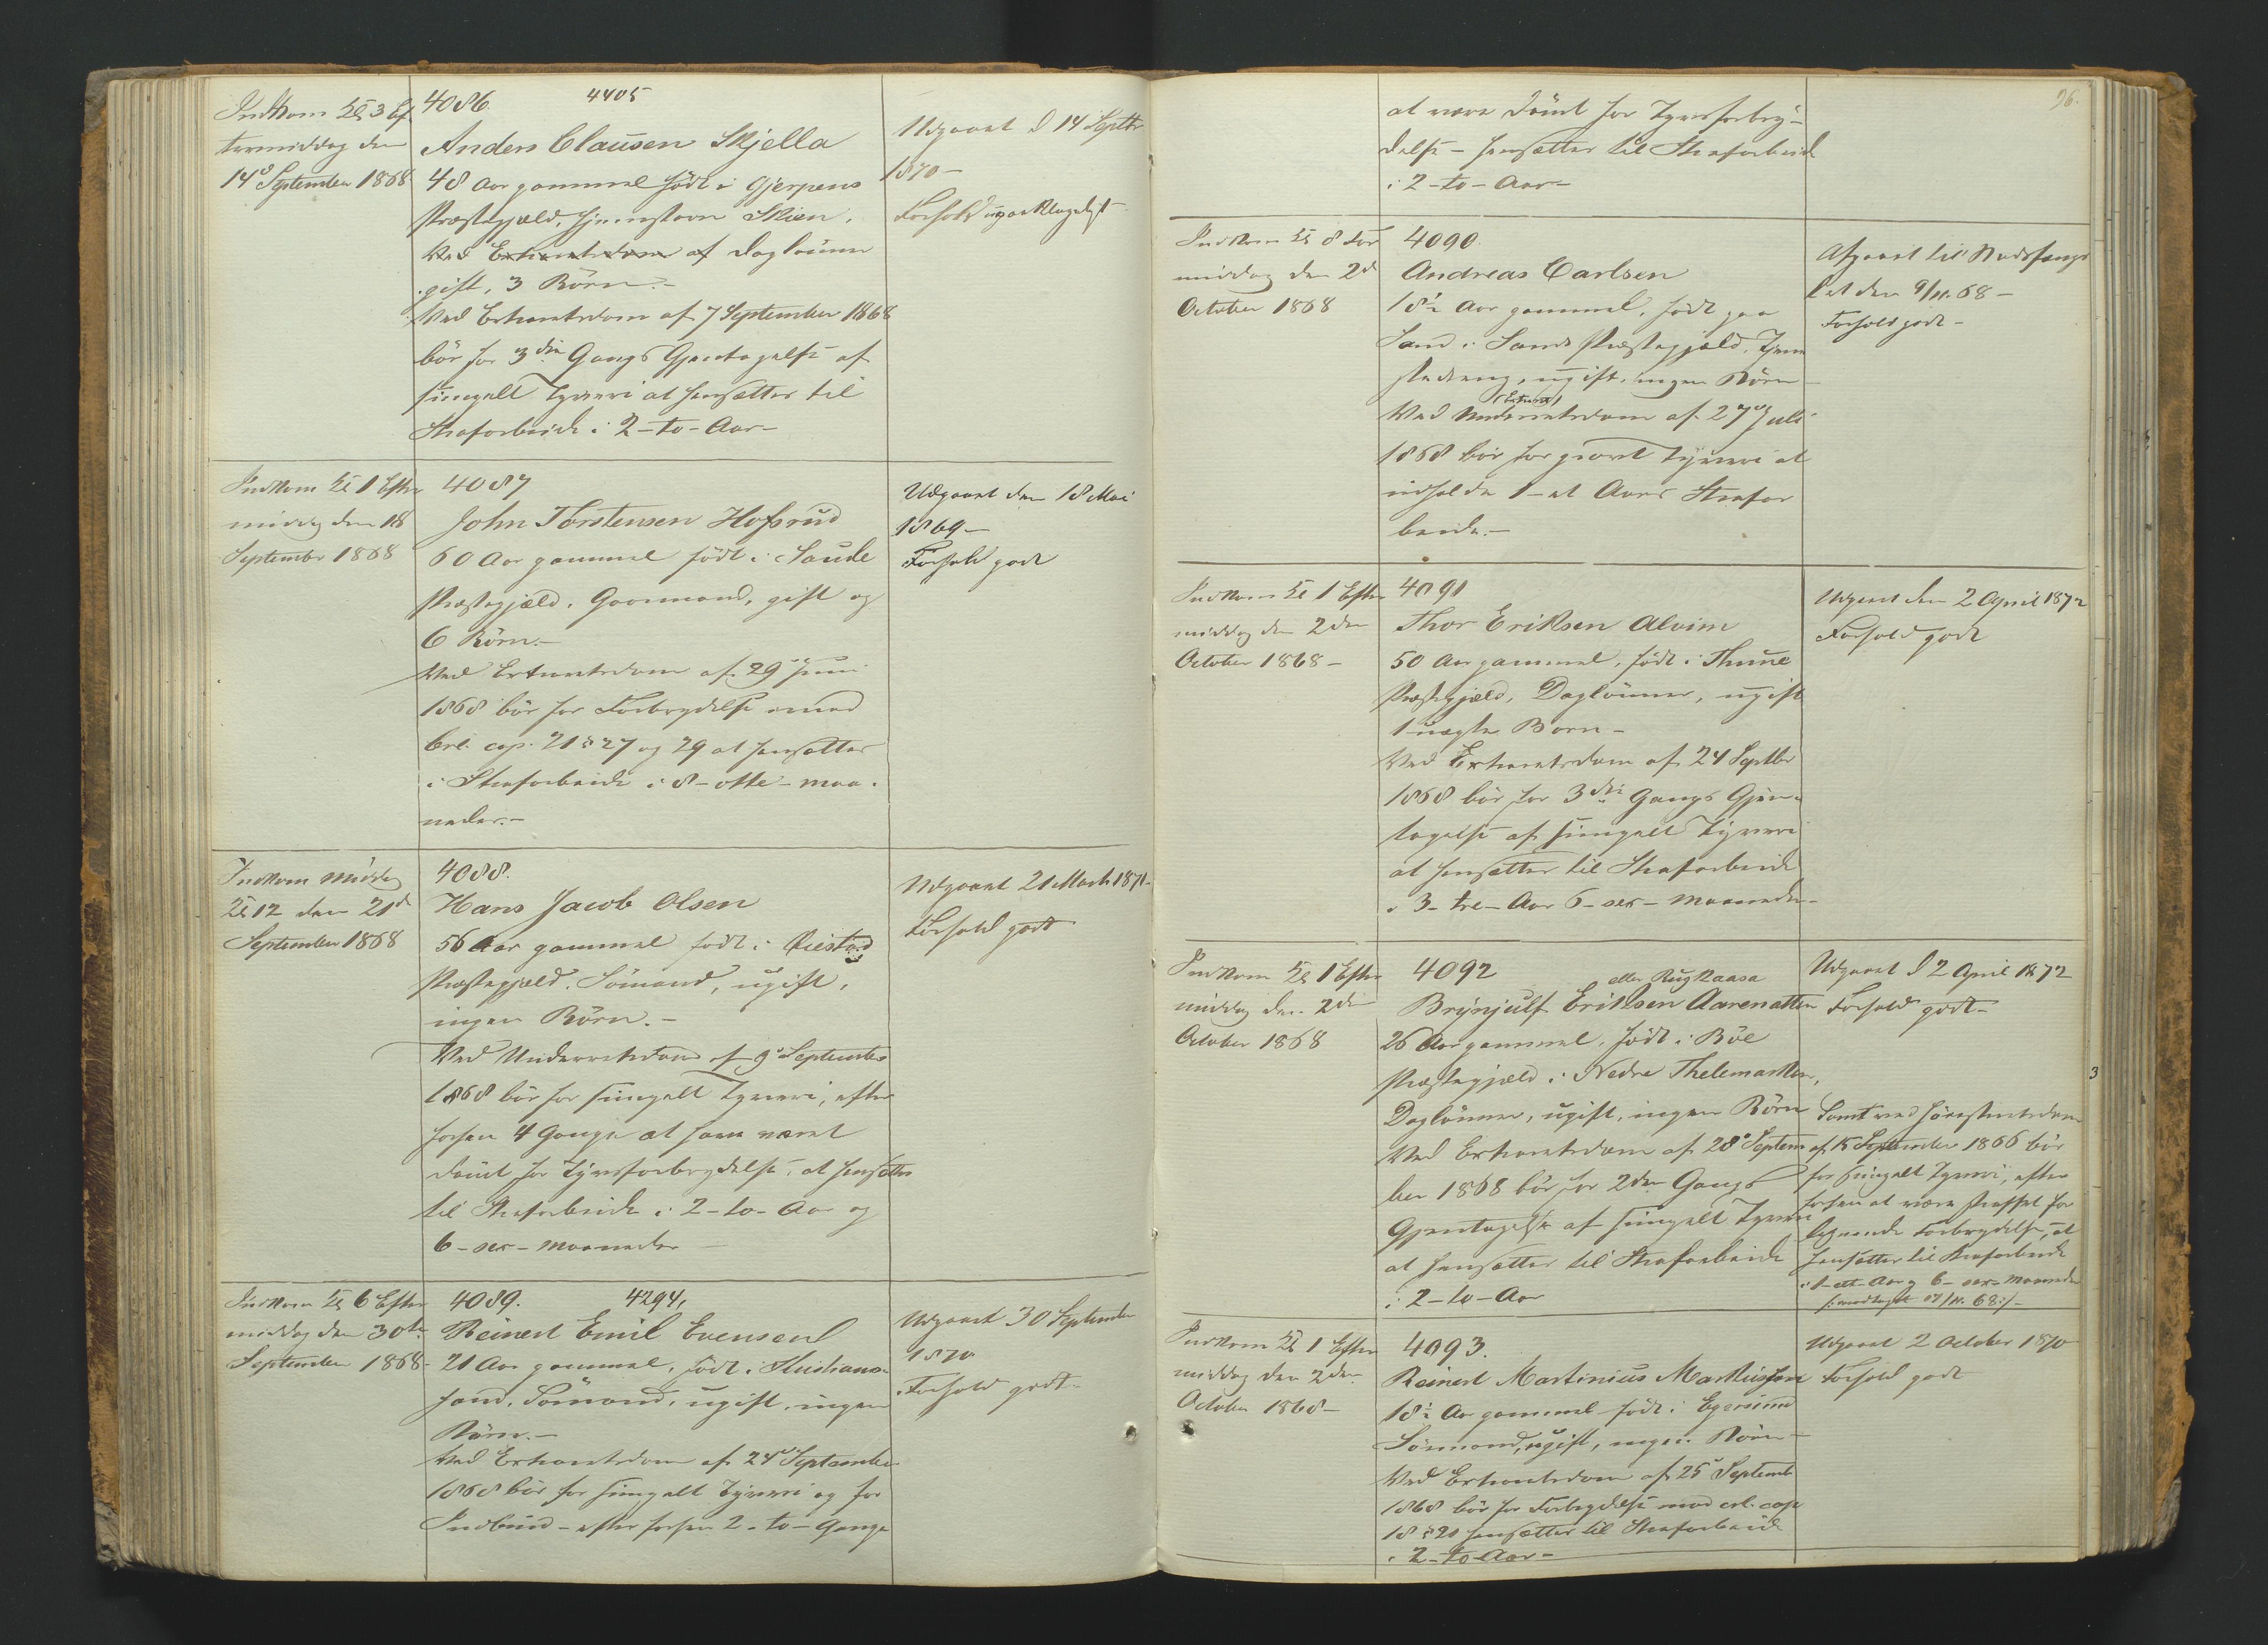 Indkom Kl 3 Ef
termiddag den
14d September 1868
4086. 4405
Anders Clausen Skjella
48 Aar gammel født i Gjerpens
Præstegjæld, hjemstavn Skien.
Ved Extraretsdom af Daglønner
gift, 3 Børn.-
Ved Extraretsdom af 7 September 1868
bør for 3die Gangs Gjentagelse af
simpelt Tyveri at hensættes til
Strafarbeide i 2-to-Aar-
Udgaaet d 14 Septbr
1870-
Forhold upaaklageligt
Indkom Kl 1 Efter
middag den 18
September 1868
4087
John Torstensen Hofsrud
60 Aar gammel født i Saude
Præstegjæld, Gaardmand, gift og
6 Børn.-
Ved Extraretsdom af 29 Juni
1868 bør for Forbrydelse imod
Crl. cap. 21 § 27 og 29 at hensættes
i Strafarbeide i 8-otte-maa-
neder.-
Udgaaet den 18 Mai
1869-
Forhold godt
Indkom Middag
Kl 12 den 21d
September 1868
4088.
Hans Jacob Olsen
56 Aar gammel født i
Præstegjæld. Sømand, ugift,
ingen Børn.-
Ved Underretsdom af 9d September
1868 bør for simpelt Tyveri, efter
forhen 4 Gange at have været
dømt for Tyvsforbrydelse, at hensættes
til Strafarbeide i 2-to-Aar og
6-sex-Maaneder-
Udgaaet 21 Marts 1871-
Forhold godt
Indkom Kl 6 Efter
middag den 30te
September 1868-
4089. 4294,
Reinert Emil Evensen
21 Aar gammel, født i Christians-
sand, Sømand, ugift, ingen
Børn.-
Ved Extraretsdom af 24d September
1868 bør for simpelt Tyveri og for
Indbrud-efter forhen 2-to-Gange
Udgaaet 30 September
1870
Forhold godt-
96.
at være dømt for Tyvsforbry-
delse-hensættes til Strafarbeide
i 2-to-Aar-
Indkom Kl 8 For
middag den 2d
October 1868
4090.
Andreas Carlsen
18½ Aar gammel, født paa
Sand i Sands Præstegjæld, Tjene
stedreng, ugift, ingen Børn-
(Extraret)
Ved Underretsdom af 27d Juli
1868 bør for grovt Tyveri at
udholde 1-et Aars Strafar
beide.-
Afgaaet til Bodsfængs
let den 9/11.68-
Forhold godt-
Indkom Kl 1 Efter
middag den 2den
October 1868-
4091
Thor Eriksen Alvim
50 Aar gammel, født i Thune
Præstegjæld, Daglønner, ugift
1 uægte Barn-
Ved Extraretsdom af 24 Septbr
1868 bør for 3die Gangs Gjen-
tagelse af simpelt Tyveri
at hensættes til Strafarbeide
i 3-tre-Aar 6-sex-Maaneder-
Udgaaet den 2 April 1872
Forhold godt
Indkom Kl 1 Efter
middag den 2den
October 1868
4092
eller Rugkaasa
Brynjulf Eriksen Aarenatten
26 Aar gammel, født i Bøe
Præstegjæld i Nedre Thelemarken,
Daglønner, ugift, ingen Børn
Ved Extraretsdom af 28d Septem
ber 1868 bør for 2den Gangs
Gjentagelse af simpelt Tyveri
at hensættes til Strafarbeide
i 2-to-Aar
Udgaaet d 2 April 1872
Forhold godt-
Samt ved Høiesteretsdom
af 15 September 1866 bør
for simpelt Tyveri, efter
forhen at være straffet for
lignende Forbrydelse, at
hensættes til Strafarbeide
i 1-ett-Aar og 6-sex-Maaneder
Indkom Kl 1 Efter
middag den 2den
October 1868-
4093.
Reinert Martinius Markussen
18½ Aar gammel født i Egersund
Sømand, ugift, ingen Børn-
Ved Extraretsdom af 25d Septemb
1868 bør for Forbrydelse mod crl. cap
18 § 21 hensættes til Strafarbeide
i 2-to-Aar-
Udgaaet 2 October 1870
Forhold godt
3